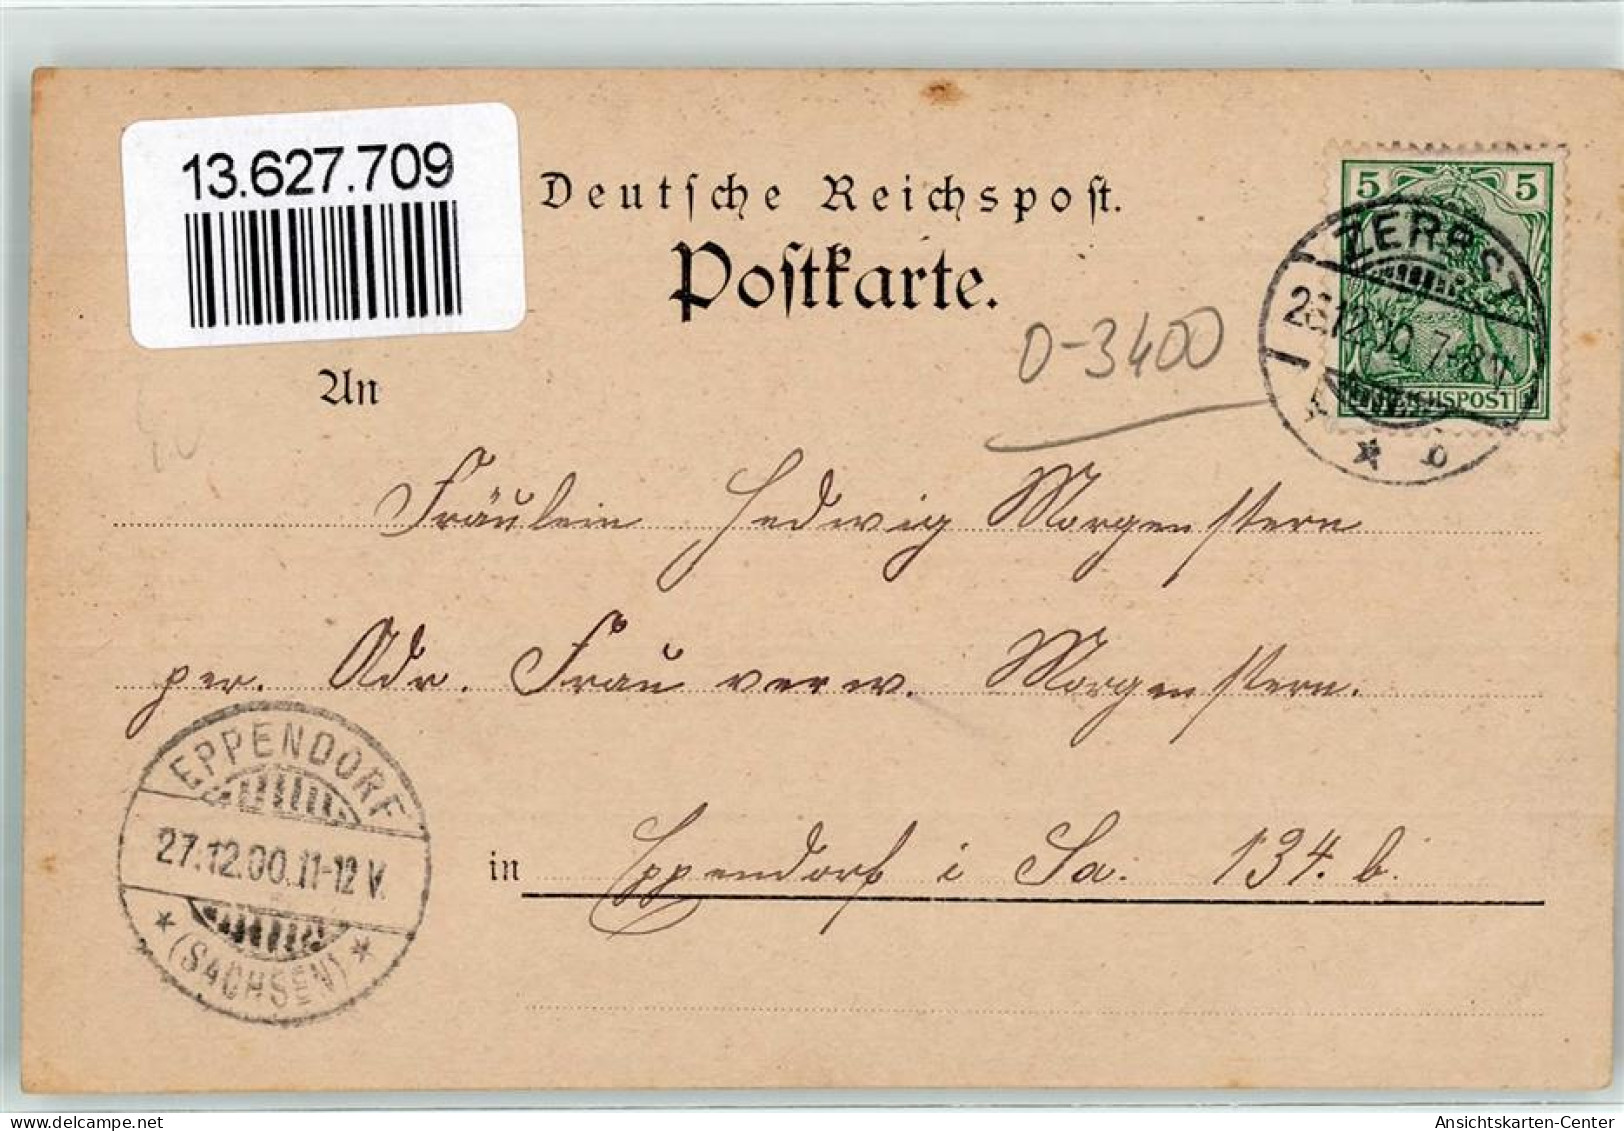 13.627.709
Deutſche Reichspoſt.
Poſtkarte.
0-3400
5 5
REICHSPOST
ZERBST
26.12.00 7-8 N
* b
An
Fräulein Hedwig Morgenstern
per. Adr. Frau verw. Morgenstern.
in Eppendorf i Sa. 134. b.
EPPENDORF
27.12.00.11-12 V.
* (SACHSEN) *
Ansichtskarten-Center